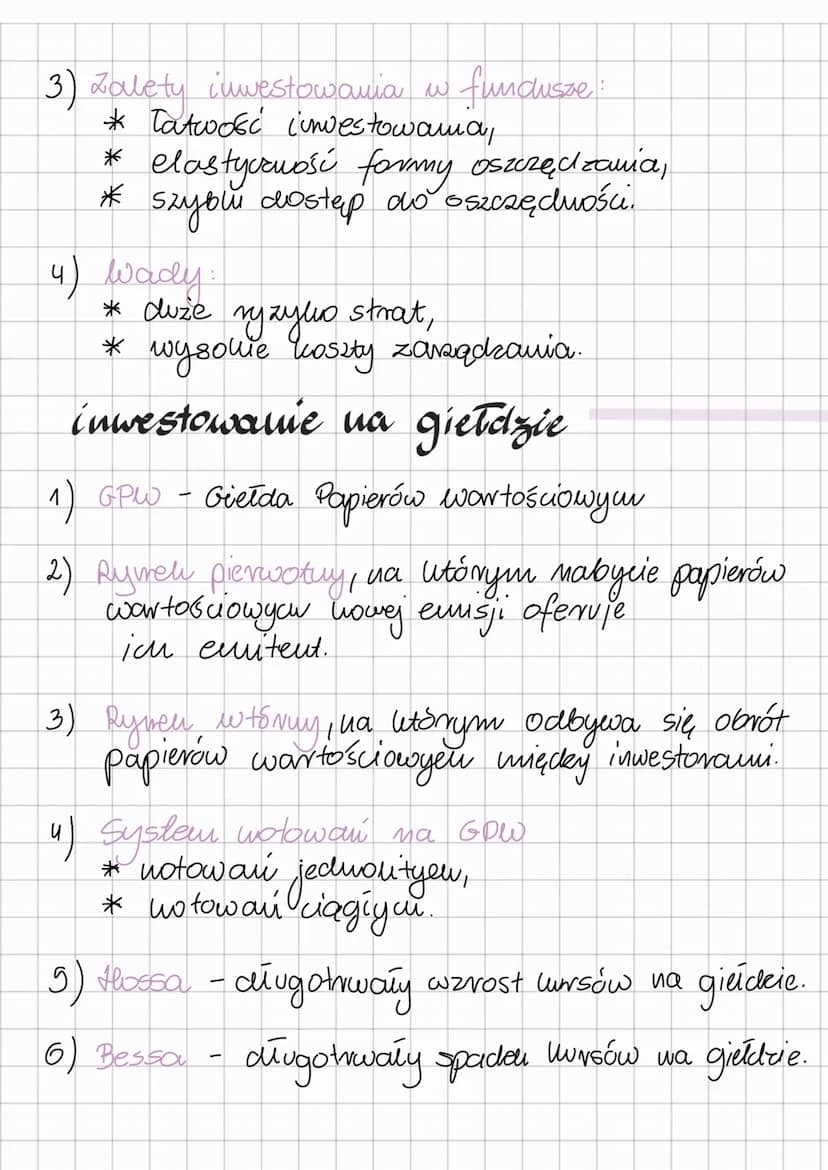 3) Zalety inwestowania w fundusze:
* łatwość inwestowania,
* elastyczność formy oszczędzania,
* szybki dostęp do oszczędności.
4) Wady:
* duże ryzyko strat,
* wysokie koszty zarządzania.
inwestowanie na giełdzie
1) GPW - Giełda Papierów wartościowych
2) Rynek pierwotny, na którym nabycie papierów
wartościowych nowej emisji oferuje
ich emitent.
3) Rynek wtórny, na którym odbywa się obrót
papierów wartościowych między inwestorami.
4) System notowań na GPW
* notowań jednolitych,
* notowań ciągłych.
5) Hossa - długotrwały wzrost kursów na giełdzie.
6) Bessa - długotrwały spadek kursów na giełdzie.